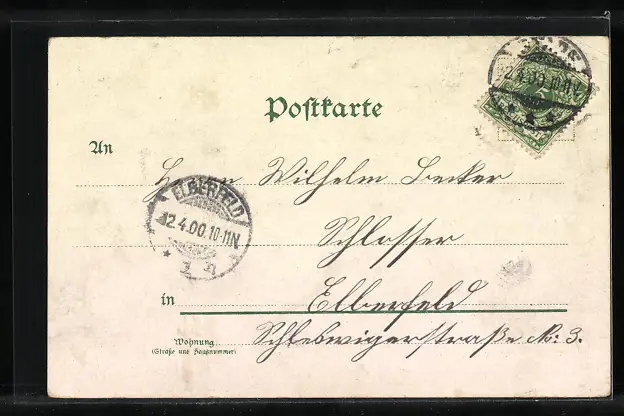 Postkarte
An
Herrn Wilhelm Becker
Schlosser
in Elberfeld
Wohnung
(Straße und Hausnummer)
Schleswigerstraße No: 3.
ELBERFELD
12.4.00.10-11N